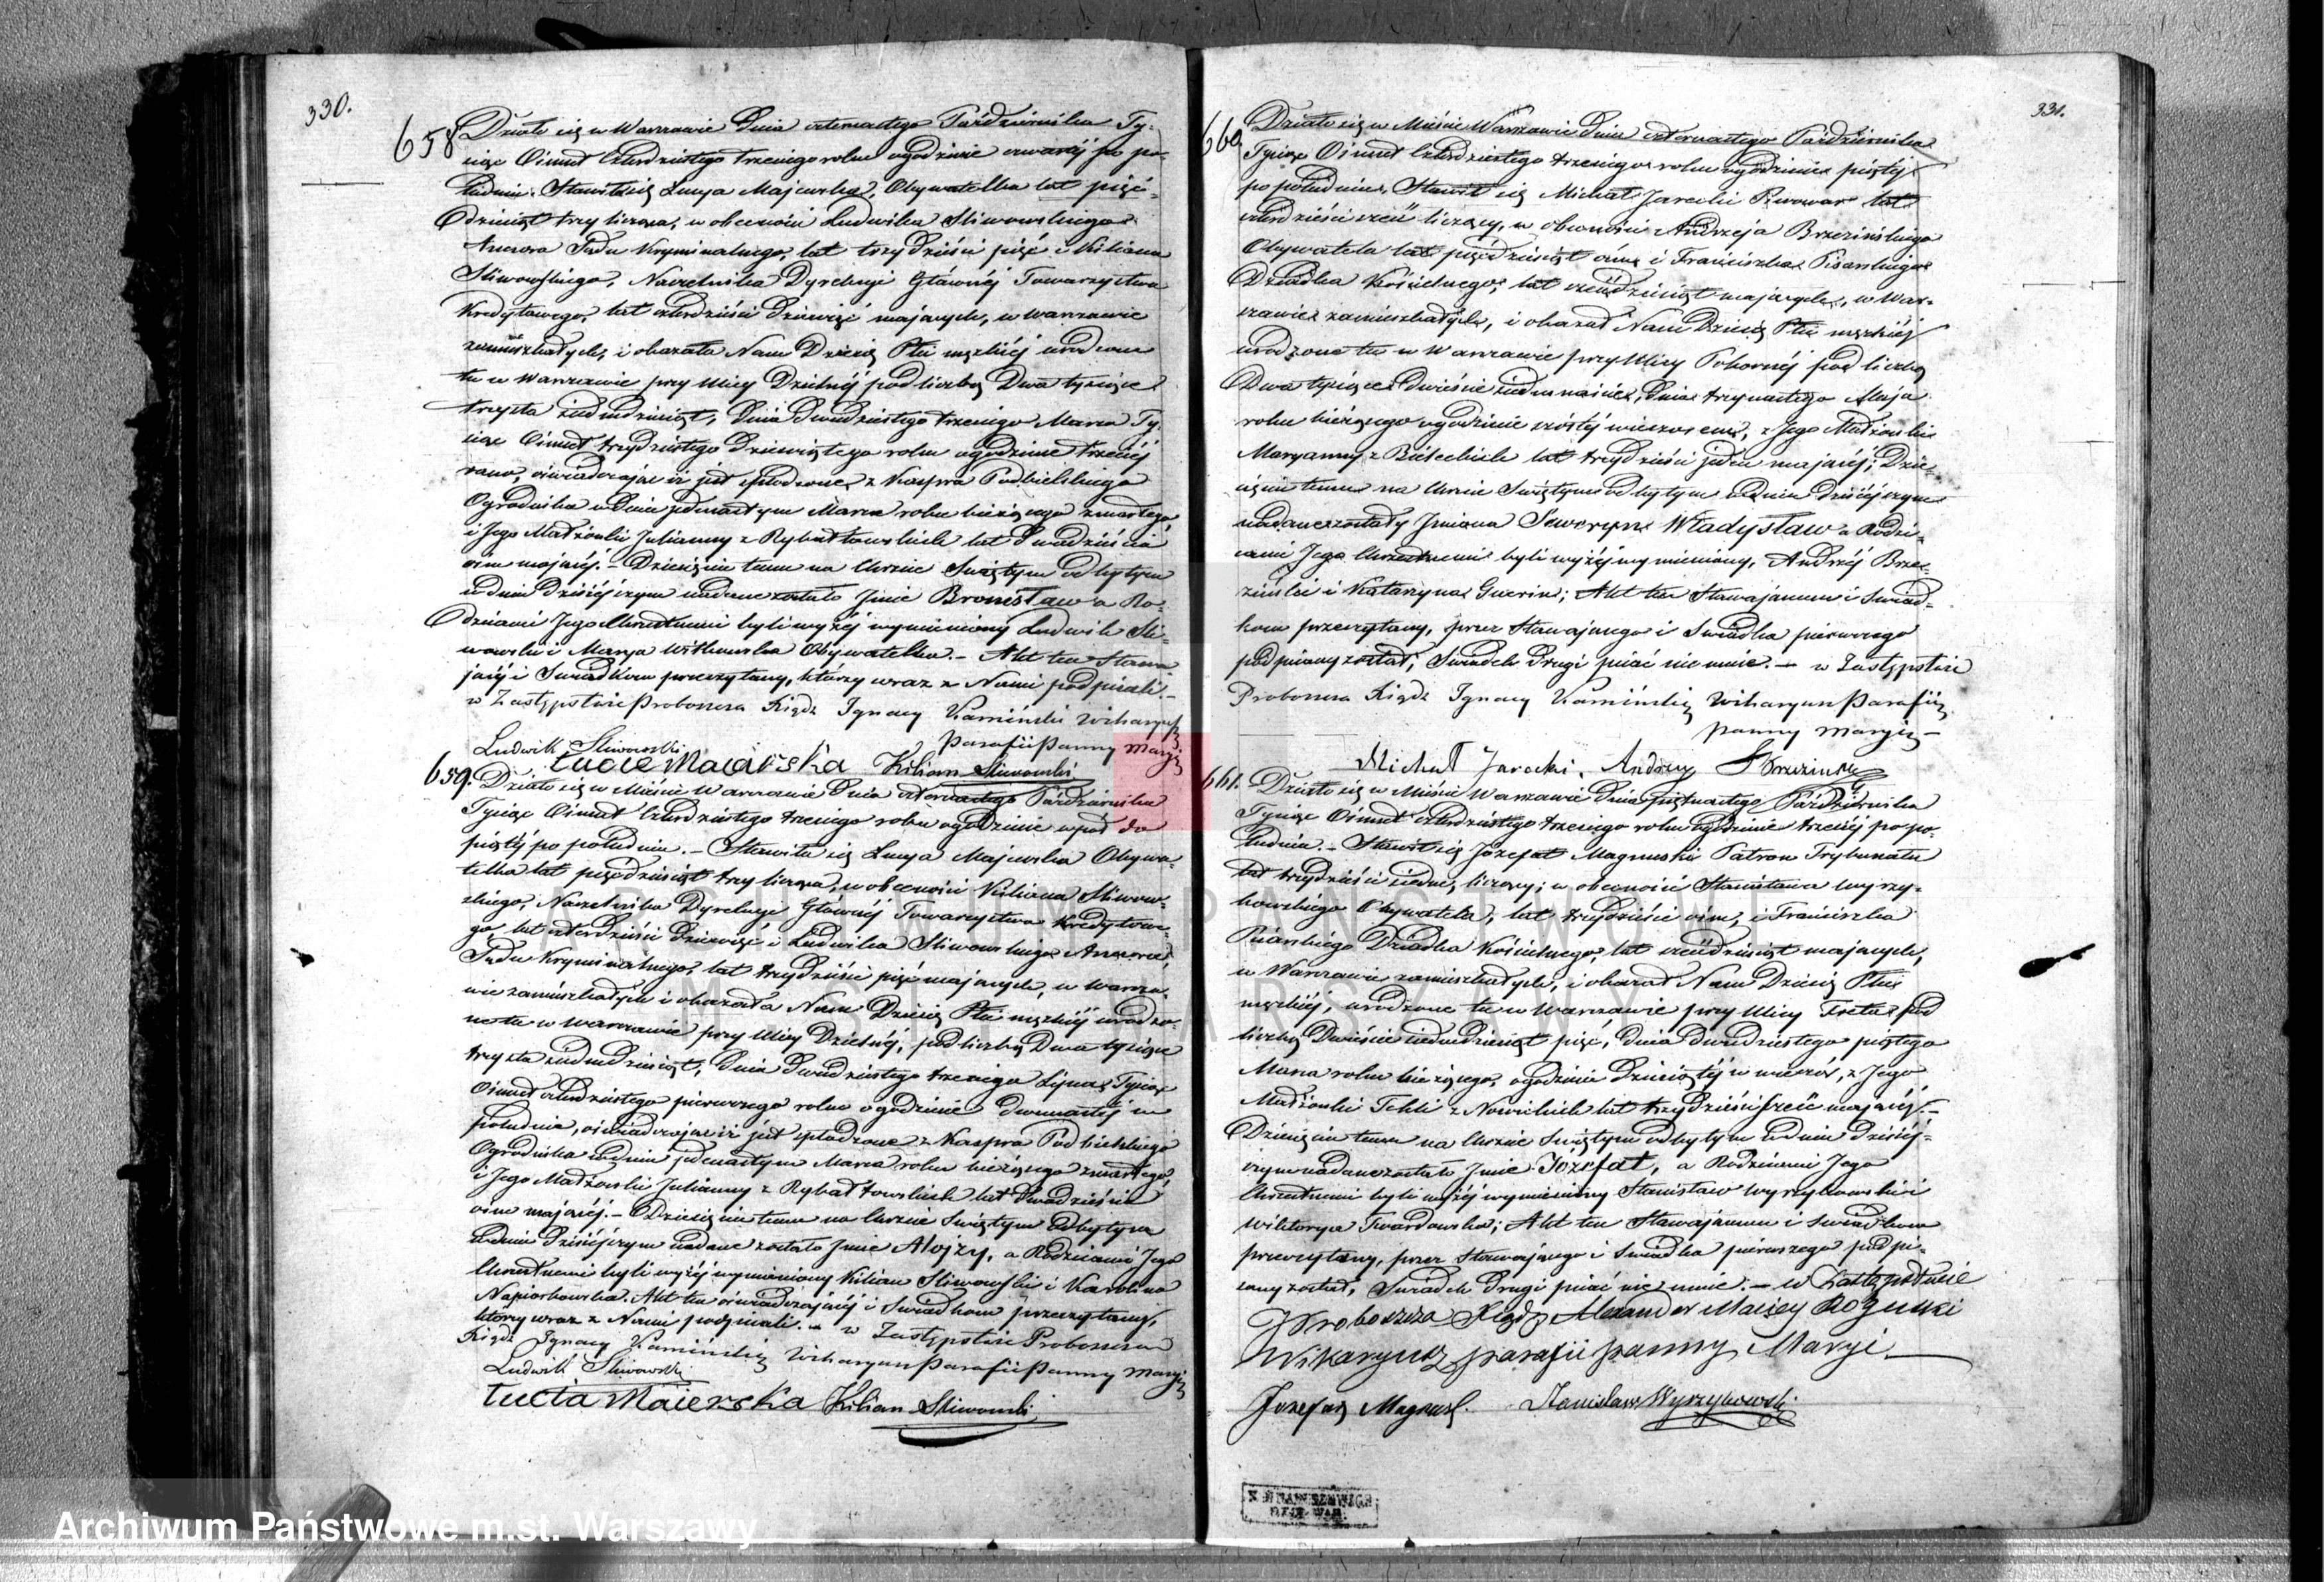 330.
658 Działo się w Warszawie dnia czternastego Października Ty-
siąc Ośmset Czterdziestego trzeciego roku o godzinie czwartej po po-
łudniu. Stawiła się Łucya Majewska, Obywatelka lat pięć-
dziesiąt trzy licząca, w obecności Ludwika Sliwowskiego
Assesora Sądu Kryminalnego, lat trzydzieści pięć i Kiliana
Sliwowskiego, Naczelnika Dyrekcyi Głównéj Towarzystwa
Kredytowego, lat czterdzieści dziewięć mających, w Warszawie
zamieszkałych, i okazała Nam Dziecię Płci męzkiéj urodzone
tu w Warszawie przy Ulicy Dzielnéj pod liczbą Dwa tysiące
trzysta siedmdziesiąt, dnia dwudziestego trzeciego Marca Ty-
siąc Ośmset trzydziestego dziewiątego roku o godzinie trzeciéj
rano, oświadczając iż jest spłodzone z Kaspra Podbielskiego
Ogrodnika w dniu jedenastym Marca roku bieżącego zmarłego,
i Jego Małżonki Julianny z Rybałtowskich lat dwadzieścia
ośm mającéj. – Dziecięciu temu na Chrzcie Świętym odbytym
w dniu dzisiéjszym nadane zostało Imie Bronisław a Ro-
dzicami Jego Chrzestnemi byli wyżéj wymieniony Ludwik Sli-
wowski i Marya Witkowska Obywatelka. – Akt ten Stawa-
jącéj i Świadkom przeczytany, którzy wraz z Nami podpisali. –
w Zastępstwie Proboszcza Xiądz Ignacy Kamiński Wikaryusz
Parafii Panny Maryi
Ludwik Sliwowski
Łucia Maiewska Kilian Sliwowski
659. Działo się w Mieście Warszawie dnia czternastego Października
Tysiąc Ośmset Czterdziestego trzeciego roku o godzinie wpół do
piątéj po południu. – Stawiła się Łucya Majewska Obywa-
telka lat pięćdziesiąt trzy licząca, w obecności Kiliana Sliwow-
skiego, Naczelnika Dyrekcyi Głównéj Towarzystwa Kredytowe-
go, lat czterdzieści dziewięć i Ludwika Sliwowskiego Assesora
Sądu Kryminalnego, lat trzydzieści pięć mających, w Warsza-
wie zamieszkałych i okazała Nam Dziecię Płci męzkiéj urodzo-
ne tu w Warszawie przy Ulicy Dzielnéj, pod liczbą Dwa tysiące
trzysta siedmdziesiąt, dnia dwudziestego trzeciego Lipca Tysiąc
Ośmset czterdziestego pierwszego roku o godzinie dwunastéj w
południe, oświadczając iż jest spłodzone z Kaspra Podbielskiego
Ogrodnika w dniu jedenastym Marca roku bieżącego zmarłego,
i Jego Małżonki Julianny z Rybałtowskich lat dwadzieścia
ośm mającéj. – Dziecięciu temu na Chrzcie Świętym odbytym
w dniu dzisiéjszym nadane zostało Imie Alojzy, a Rodzicami Jego
Chrzestnemi byli wyżéj wymieniony Kilian Sliwowski i Karolina
Napiorkowska. Akt ten oświadczającéj i Świadkom przeczytany,
którzy wraz z Nami podpisali. – w Zastępstwie Proboszcza
Xiądz Ignacy Kamiński Wikaryusz Parafii Panny Maryi
Ludwik Sliwowski
Łucia Maiewska Kilian Sliwowski
331.
660. Działo się w Mieście Warszawie dnia czternastego Października
Tysiąc Ośmset Czterdziestego trzeciego roku o godzinie piątéj
po południu, Stawił się Michał Jarecki Piwowar lat
czterdzieści sześć liczący, w obecności Andrzeja Brzezińskiego
Obywatela lat pięćdziesiąt ośm i Franciszka Pisarskiego
Dziadka Kościelnego, lat sześćdziesiąt mających, w War-
szawie zamieszkałych, i okazał Nam Dziecię Płci męzkiéj
urodzone tu w Warszawie przy Ulicy Pokornéj pod liczbą
Dwa tysiące dwieście siedmnaście, dnia trzynastego Maja
roku bieżącego o godzinie szóstéj wieczorem, z Jego Małżonki
Maryanny z lat trzydzieści jeden mającéj; Dzie-
cięciu temu na Chrzcie Świętym odbytym w dniu dzisiéjszym
nadane zostały Imiona Seweryn Władysław a Rodzi-
cami Jego Chrzestnemi byli wyżéj wymieniony, Andrzéj Brze-
ziński i Katarzyna Guerin; Akt ten Stawającemu i Świad-
kom przeczytany, przez Stawającego i Świadka pierwszego
podpisany został, Świadek drugi pisać nie umie. – w Zastępstwie
Proboszcza Xiądz Ignacy Kamiński Wikaryusz Parafii
Panny Maryi –
Michał Jarocki. Andrzey Brzezinski
661. Działo się w Mieście Warszawie dnia piętnastego Października
Tysiąc Ośmset czterdziestego trzeciego roku o godzinie trzeciéj po po-
łudniu. – Stawił się Józefat Magnuski Patron Trybunału
lat trzydzieści siedm liczący; w obecności Stanisława Wyrzy-
kowskiego Obywatela, lat trzydzieści ośm, i Franciszka
Pisarskiego Dziadka Kościelnego, lat sześćdziesiąt mających,
w Warszawie zamieszkałych, i okazał Nam Dziecię Płci
męzkiéj, urodzone tu w Warszawie przy Ulicy Freta pod
liczbą Dwieście siedmdziesiąt pięć, dnia dwudziestego piątego
Marca roku bieżącego, o godzinie dziesiątéj w wieczór, z Jego
Małżonki Tekli z Nowickich lat trzydzieści sześć mającéj. –
Dziecięciu temu na Chrzcie Świętym odbytym w dniu dzisiéj-
szym nadane zostało Imie Józefat, a Rodzicami Jego
Chrzestnemi byli wyżéj wymieniony Stanisław Wyrzykowski i
Wiktorya Twardowska; Akt ten Stawającemu i Świadkom
przeczytany, przez Stawającego i Świadka pierwszego podpi-
sany został, Świadek drugi pisać nie umie. – w Zastępstwie
Proboszcza Xiądz Alexander Maciey Rogulski
Wikaryusz parafii panny Maryi
Józefat Magnusk. Stanisław Wyrzykowski
ARCHIWUM PAŃSTWOWE
M. ST. WARSZAWY
Archiwum Państwowe m.st. Warszawy